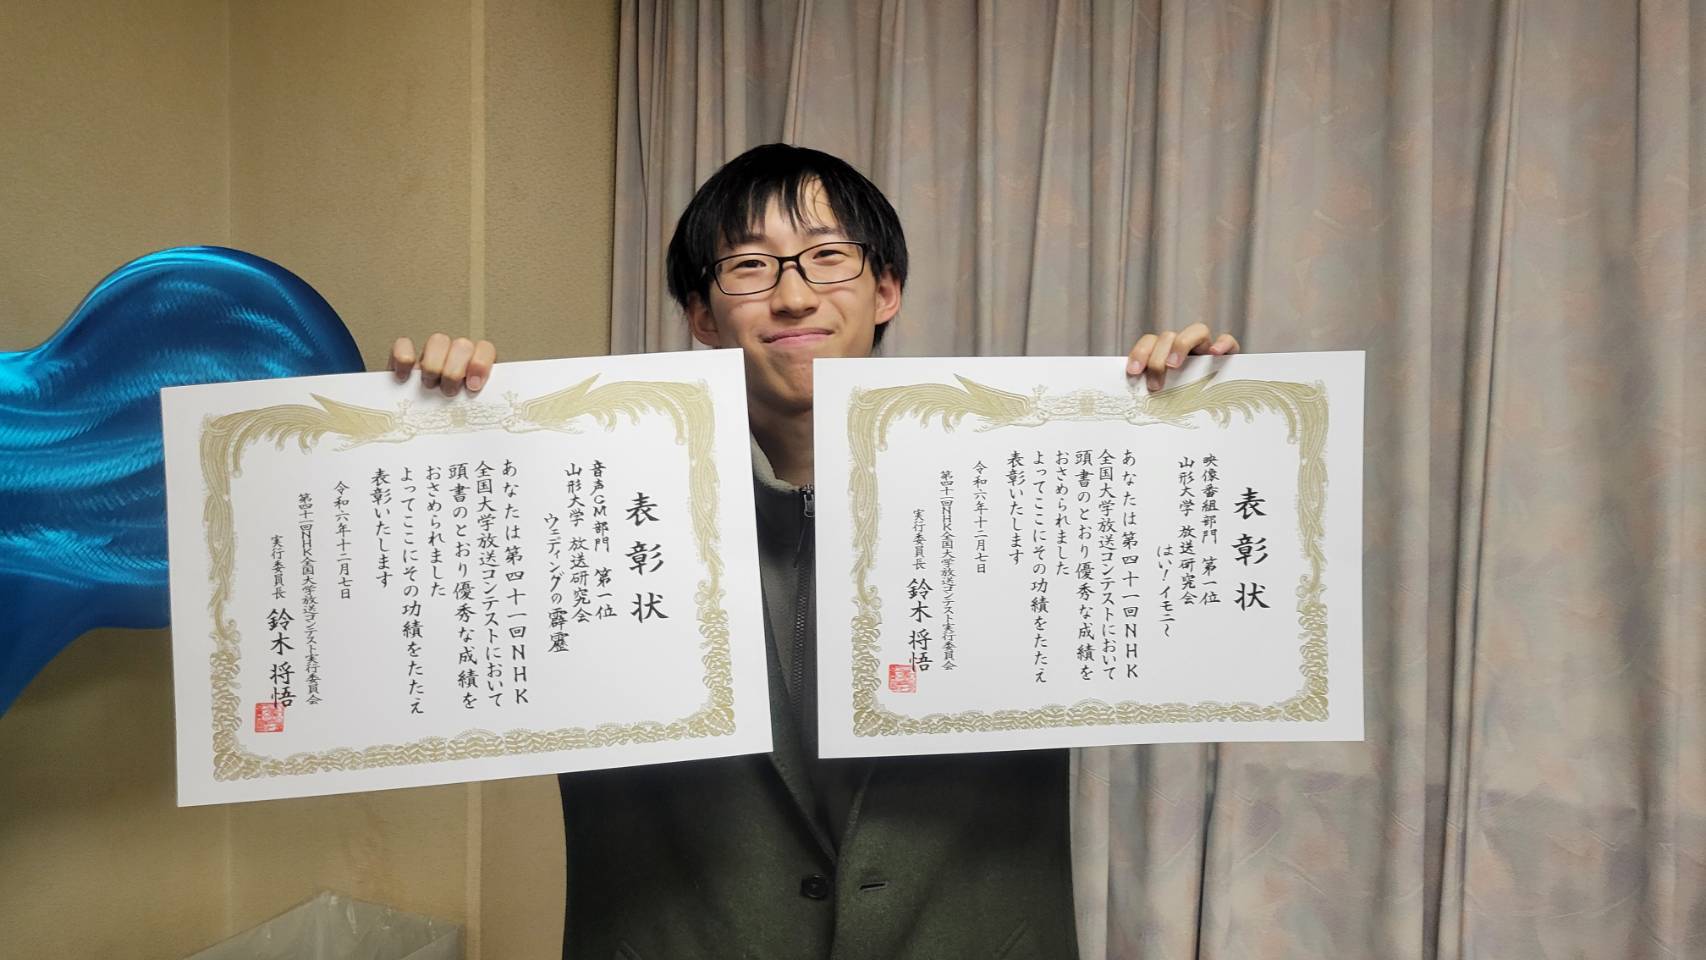 表彰状
音声CM部門 第一位
山形大学 放送研究会
ウェディングの霹靂
あなたは第四十一回NHK
全国大学放送コンテストにおいて
頭書のとおり優秀な成績を
おさめられました
よってここにその功績をたたえ
表彰いたします
令和六年十二月七日
第四十一回NHK全国大学放送コンテスト実行委員会
実行委員長 鈴木将悟
表彰状
映像番組部門 第一位
山形大学 放送研究会
はい!イモニ~
あなたは第四十一回NHK
全国大学放送コンテストにおいて
頭書のとおり優秀な成績を
おさめられました
よってここにその功績をたたえ
表彰いたします
令和六年十二月七日
第四十一回NHK全国大学放送コンテスト実行委員会
実行委員長 鈴木将悟